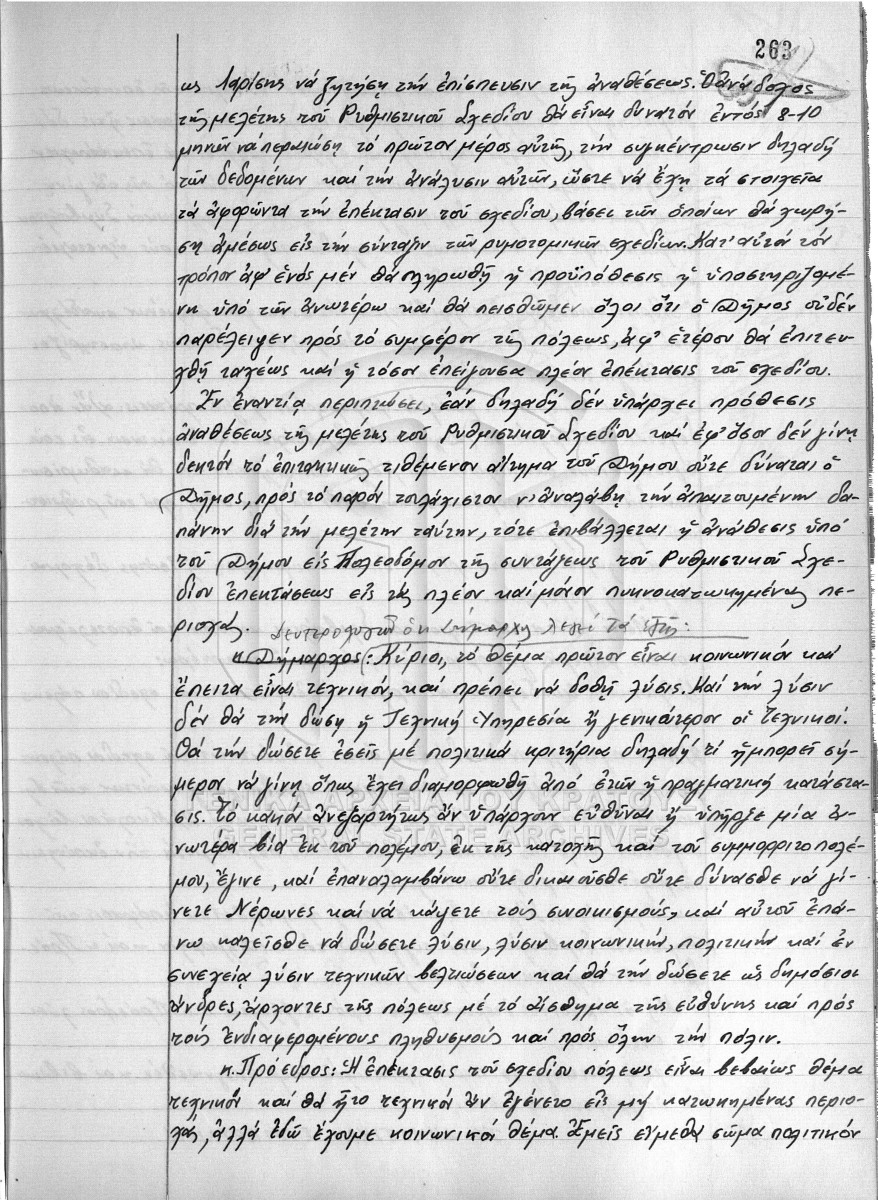 263
ως Λαρίσης νά ζητήση τήν ἐπίσπευσιν τῆς ἀναθέσεως. Ὁ ἀνάδοχος
τῆς μελέτης τοῦ Ρυθμιστικοῦ Σχεδίου θά εἶναι δυνατόν ἐντός 8-10
μηνῶν νά περαιώση τό πρῶτον μέρος αὐτῆς, τήν συγκέντρωσιν δηλαδή
τῶν δεδομένων καί τήν ἀνάλυσιν αὐτῶν, ὥστε νά ἔχη τά στοιχεῖα
τά ἀφορῶντα τήν ἐπέκτασιν τοῦ σχεδίου, βάσει τῶν ὁποίων θά χωρή-
ση ἀμέσως εἰς τήν σύνταξιν τῶν ρυμοτομικῶν σχεδίων. Κατ' αὐτόν τόν
τρόπον ἀφ' ἑνός μέν θά πληρωθῆ ἡ προϋπόθεσις ἡ ὑποστηριζομέ-
νη ὑπό τῶν ἀνωτέρω καί θά πεισθῶμεν ὅλοι ὅτι ὁ Δῆμος οὐδέν
παρέλειψεν πρός τό συμφέρον τῆς πόλεως, ἀφ' ἑτέρου θά ἐπιτευ-
χθῆ ταχέως καί ἡ τόσον ἐπείγουσα πλέον ἐπέκτασις τοῦ σχεδίου.
Ἐν ἐναντίᾳ περιπτώσει, ἐάν δηλαδή δέν ὑπάρχει πρόθεσις
ἀναθέσεως τῆς μελέτης τοῦ Ρυθμιστικοῦ Σχεδίου καί ἐφ' ὅσον δέν γίνη
δεκτόν τό ἐπιτακτικῶς τιθέμενον αἴτημα τοῦ Δήμου οὔτε δύναται ὁ
Δῆμος, πρός τό παρόν τουλάχιστον ν' ἀναλάβη τήν ἀπαιτουμένην δα-
πάνην διά τήν μελέτην ταύτην, τότε ἐπιβάλλεται ἡ ἀνάθεσις ὑπό
τοῦ Δήμου εἰς Πολεοδόμον τῆς συντάξεως τοῦ Ρυθμιστικοῦ Σχε-
δίου ἐπεκτάσεως εἰς τάς πλέον καί μόνον πυκνοκατῳκημένας πε-
ριοχάς. Δευτερολογῶν ὁ κ. Δήμαρχος λέγει τά ἑξῆς:
κ. Δήμαρχος: Κύριοι, τό θέμα πρῶτον εἶναι κοινωνικόν καί
ἔπειτα εἶναι τεχνικόν, καί πρέπει νά δοθῆ λύσις. Καί τήν λύσιν
δέν θά τήν δώση ἡ Τεχνική Ὑπηρεσία ἤ γενικώτερον οἱ Τεχνικοί.
Θά τήν δώσετε ἐσεῖς μέ πολιτικά κριτήρια δηλαδή τί ἠμπορεῖ σή-
μερον νά γίνη ὅπως ἔχει διαμορφωθῆ ἀπό ἐτῶν ἡ πραγματική κατάστα-
σις. Τό κακόν ἀνεξαρτήτως ἄν ὑπάρχουν εὐθῦναι ἤ ὑπῆρξε μία ἀ-
νωτέρα βία ἐκ τοῦ πολέμου, ἐκ τῆς κατοχῆς καί τοῦ συμμοριτοπολέ-
μου, ἔγινε, καί ἐπαναλαμβάνω οὔτε δικαιοῦσθε οὔτε δύνασθε νά γί-
νετε Νέρωνες καί νά κάψετε τούς συνοικισμούς, καί αὐτοῦ ἐπά-
νω καλεῖσθε νά δώσετε λύσιν, λύσιν κοινωνικήν, πολιτικήν καί ἐν
συνεχείᾳ λύσιν τεχνικῶν βελτιώσεων καί θά τήν δώσετε ὡς δημόσιοι
ἄνδρες, ἄρχοντες τῆς πόλεως μέ τό αἴσθημα τῆς εὐθύνης καί πρός
τούς ἐνδιαφερομένους πληθυσμούς καί πρός ὅλην τήν πόλιν.
κ. Πρόεδρος: Ἡ ἐπέκτασις τοῦ σχεδίου πόλεως εἶναι βεβαίως θέμα
τεχνικόν καί θά ἦτο τεχνικόν ἄν ἐγένετο εἰς μή κατῳκημένας περιο-
χάς, ἀλλά ἐδῶ ἔχουμε κοινωνικόν θέμα. Ἐμεῖς εἴμεθα σῶμα πολιτικόν
ΓΕΝΙΚΑ ΑΡΧΕΙΑ ΤΟΥ ΚΡΑΤΟΥΣ
GENERAL STATE ARCHIVES